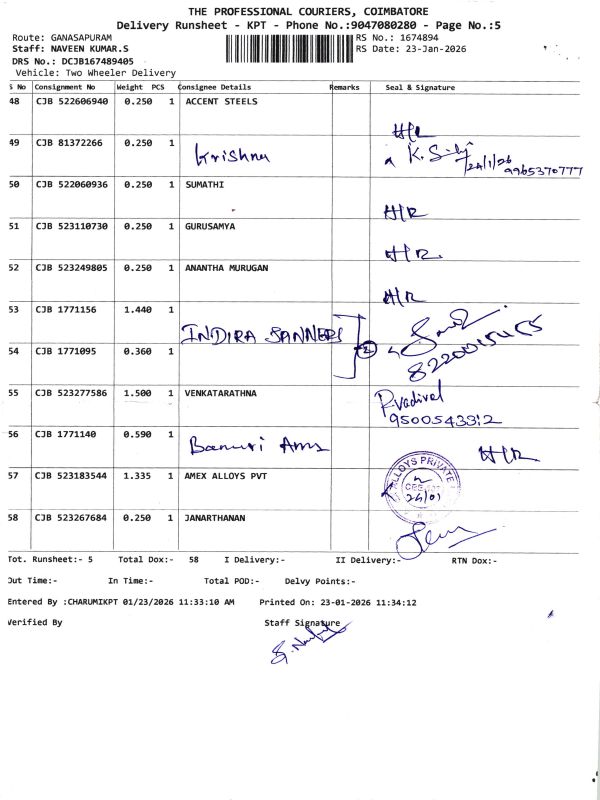 THE PROFESSIONAL COURIERS, COIMBATORE
Delivery Runsheet - KPT - Phone No.:9047080280 - Page No.:5
Route: GANASAPURAM
RS No.: 1674894
Staff: NAVEEN KUMAR.S
RS Date: 23-Jan-2026
DRS No.: DCJB167489405
Vehicle: Two Wheeler Delivery
S No Consignment No Weight PCS Consignee Details Remarks Seal & Signature
48 CJB 522606940 0.250 1 ACCENT STEELS H/R
49 CJB 81372266 0.250 1 Krishna 24/1/26 9965370777
50 CJB 522060936 0.250 1 SUMATHI H/R
51 CJB 523110730 0.250 1 GURUSAMYA H/R.
52 CJB 523249805 0.250 1 ANANTHA MURUGAN H/R
53 CJB 1771156 1.440 1
INDIRA SANNERS 2
54 CJB 1771095 0.360 1
55 CJB 523277586 1.500 1 VENKATARATHNA P.vadivel
9500543312
56 CJB 1771140 0.590 1 H/R
57 CJB 523183544 1.335 1 AMEX ALLOYS PVT ALLOYS PRIVATE
24/01
58 CJB 523267684 0.250 1 JANARTHANAN
Tot. Runsheet:- 5 Total Dox:- 58 I Delivery:- II Delivery:- RTN Dox:-
Out Time:- In Time:- Total POD:- Delvy Points:-
Entered By :CHARUMIKPT 01/23/2026 11:33:10 AM Printed On: 23-01-2026 11:34:12
Verified By Staff Signature